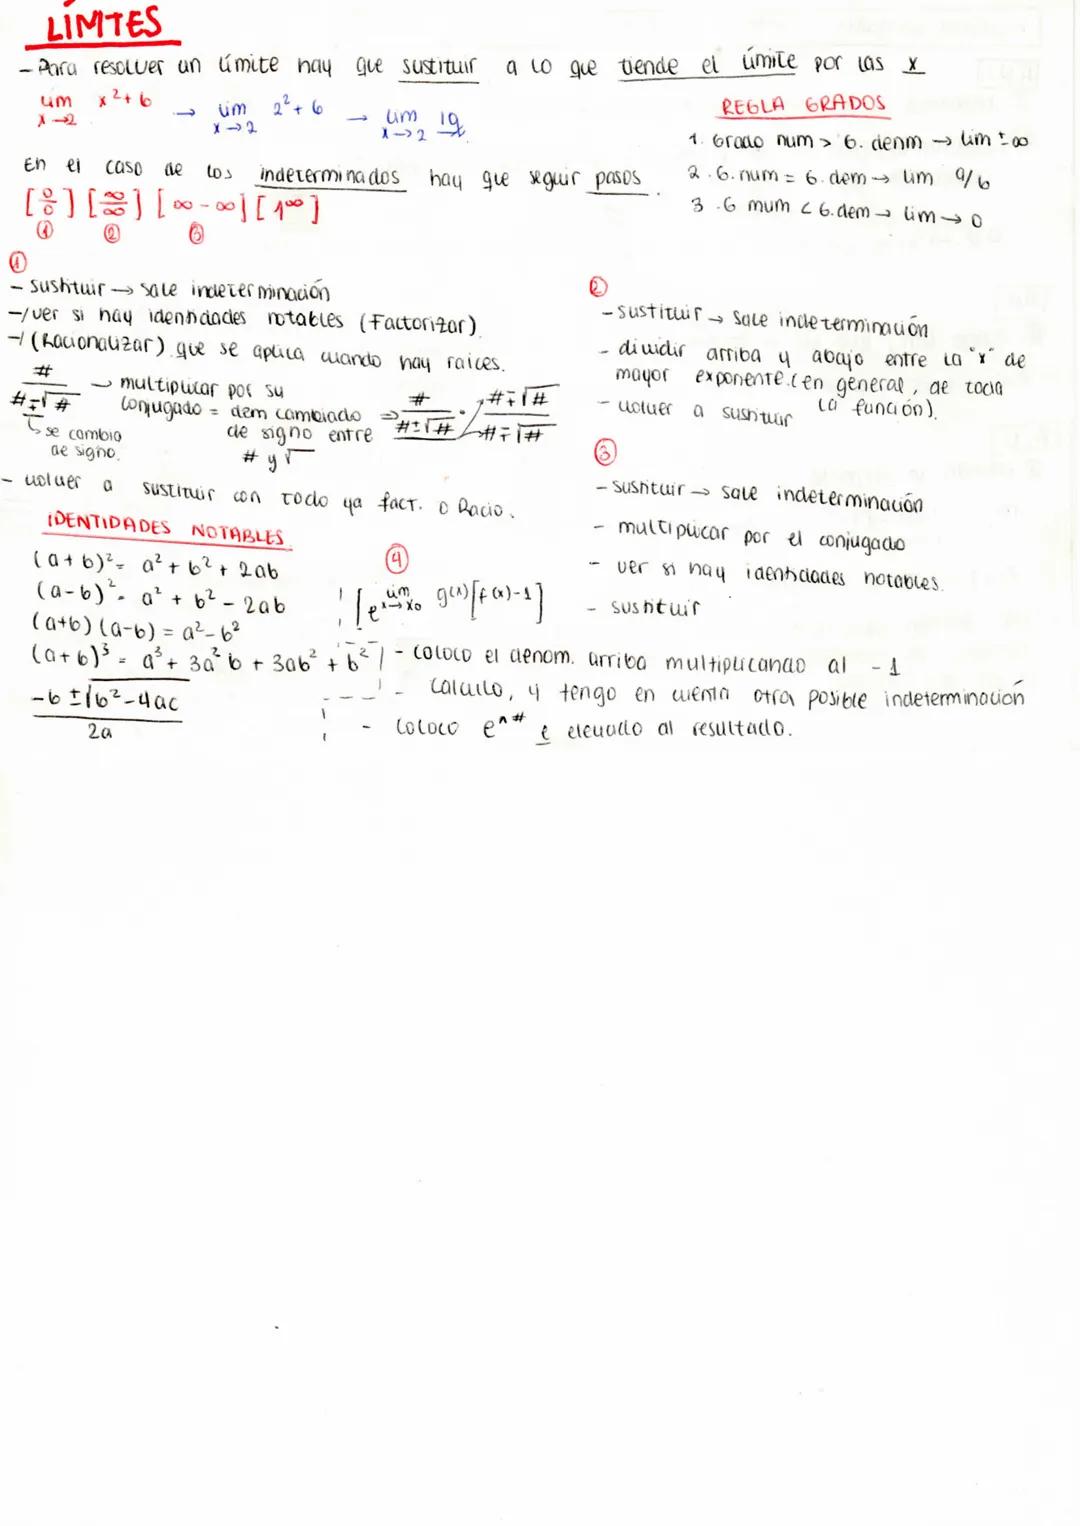 LÍMTES
- Para resolver un límite hay que sustituir a lo que tiende el límite por las x
lim x→2 x²+6 → lim x→2 2²+6 → lim x→2 10
REGLA GRADOS
1. Grado num > G. denm → lim ±∞
2. G. num = G. dem → lim a/b
3. G mum < G. dem → lim → 0
En el caso de los indeterminados hay que seguir pasos.
[0/0] [∞/∞] [∞-∞] [1^∞]
① ② ③
①
- sustituir → sale indeterminación
-/ver si hay identidades notables (Factorizar).
-/(Racionalizar) que se aplica cuando hay raíces.
#/#∓√# → multiplicar por su conjugado = dem cambiado de signo entre # y √ ⇒ #/#±√# · #∓√#/#∓√#
↳ se cambio de signo.
- volver a sustituir con todo ya fact. o Racio.
②
- sustituir → sale indeterminación
- dividir arriba y abajo entre la "x" de
mayor exponente. (en general, de tocia
la función).
- volver a sustituir
③
- sustituir → sale indeterminación
- multiplicar por el conjugado
- ver si hay identidades notables.
- sustituir
IDENTIDADES NOTABLES
(a+b)² = a²+b²+2ab
(a-b)² = a²+b²-2ab
(a+b)(a-b) = a²-b²
(a+b)³ = a³+3a²b+3ab²+b²
-b±√b²-4ac / 2a
④
[e^lim x→x₀ g(x)[f(x)-1]]
- coloco el denom. arriba multiplicando al -1
- Calculo, y tengo en cuenta otra posible indeterminación
- Coloco e^# e elevado al resultado.